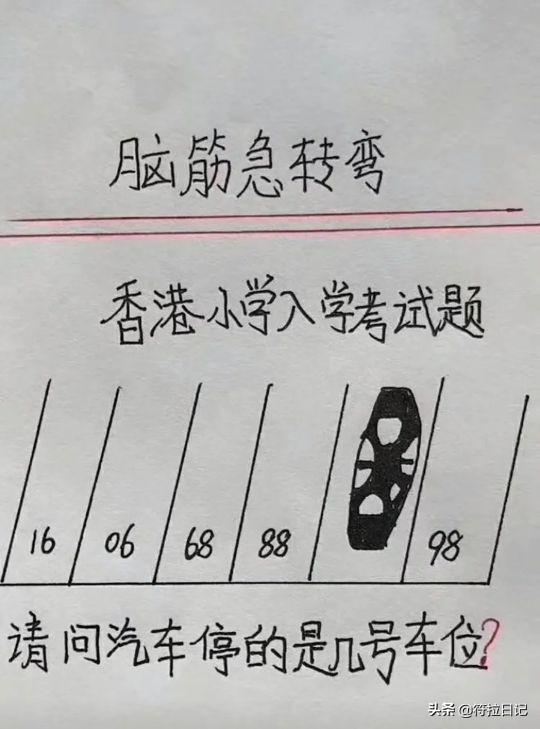 脑筋急转弯
香港小学入学考试题
16 06 68 88 98
请问汽车停的是几号车位?
头条 @符拉日记